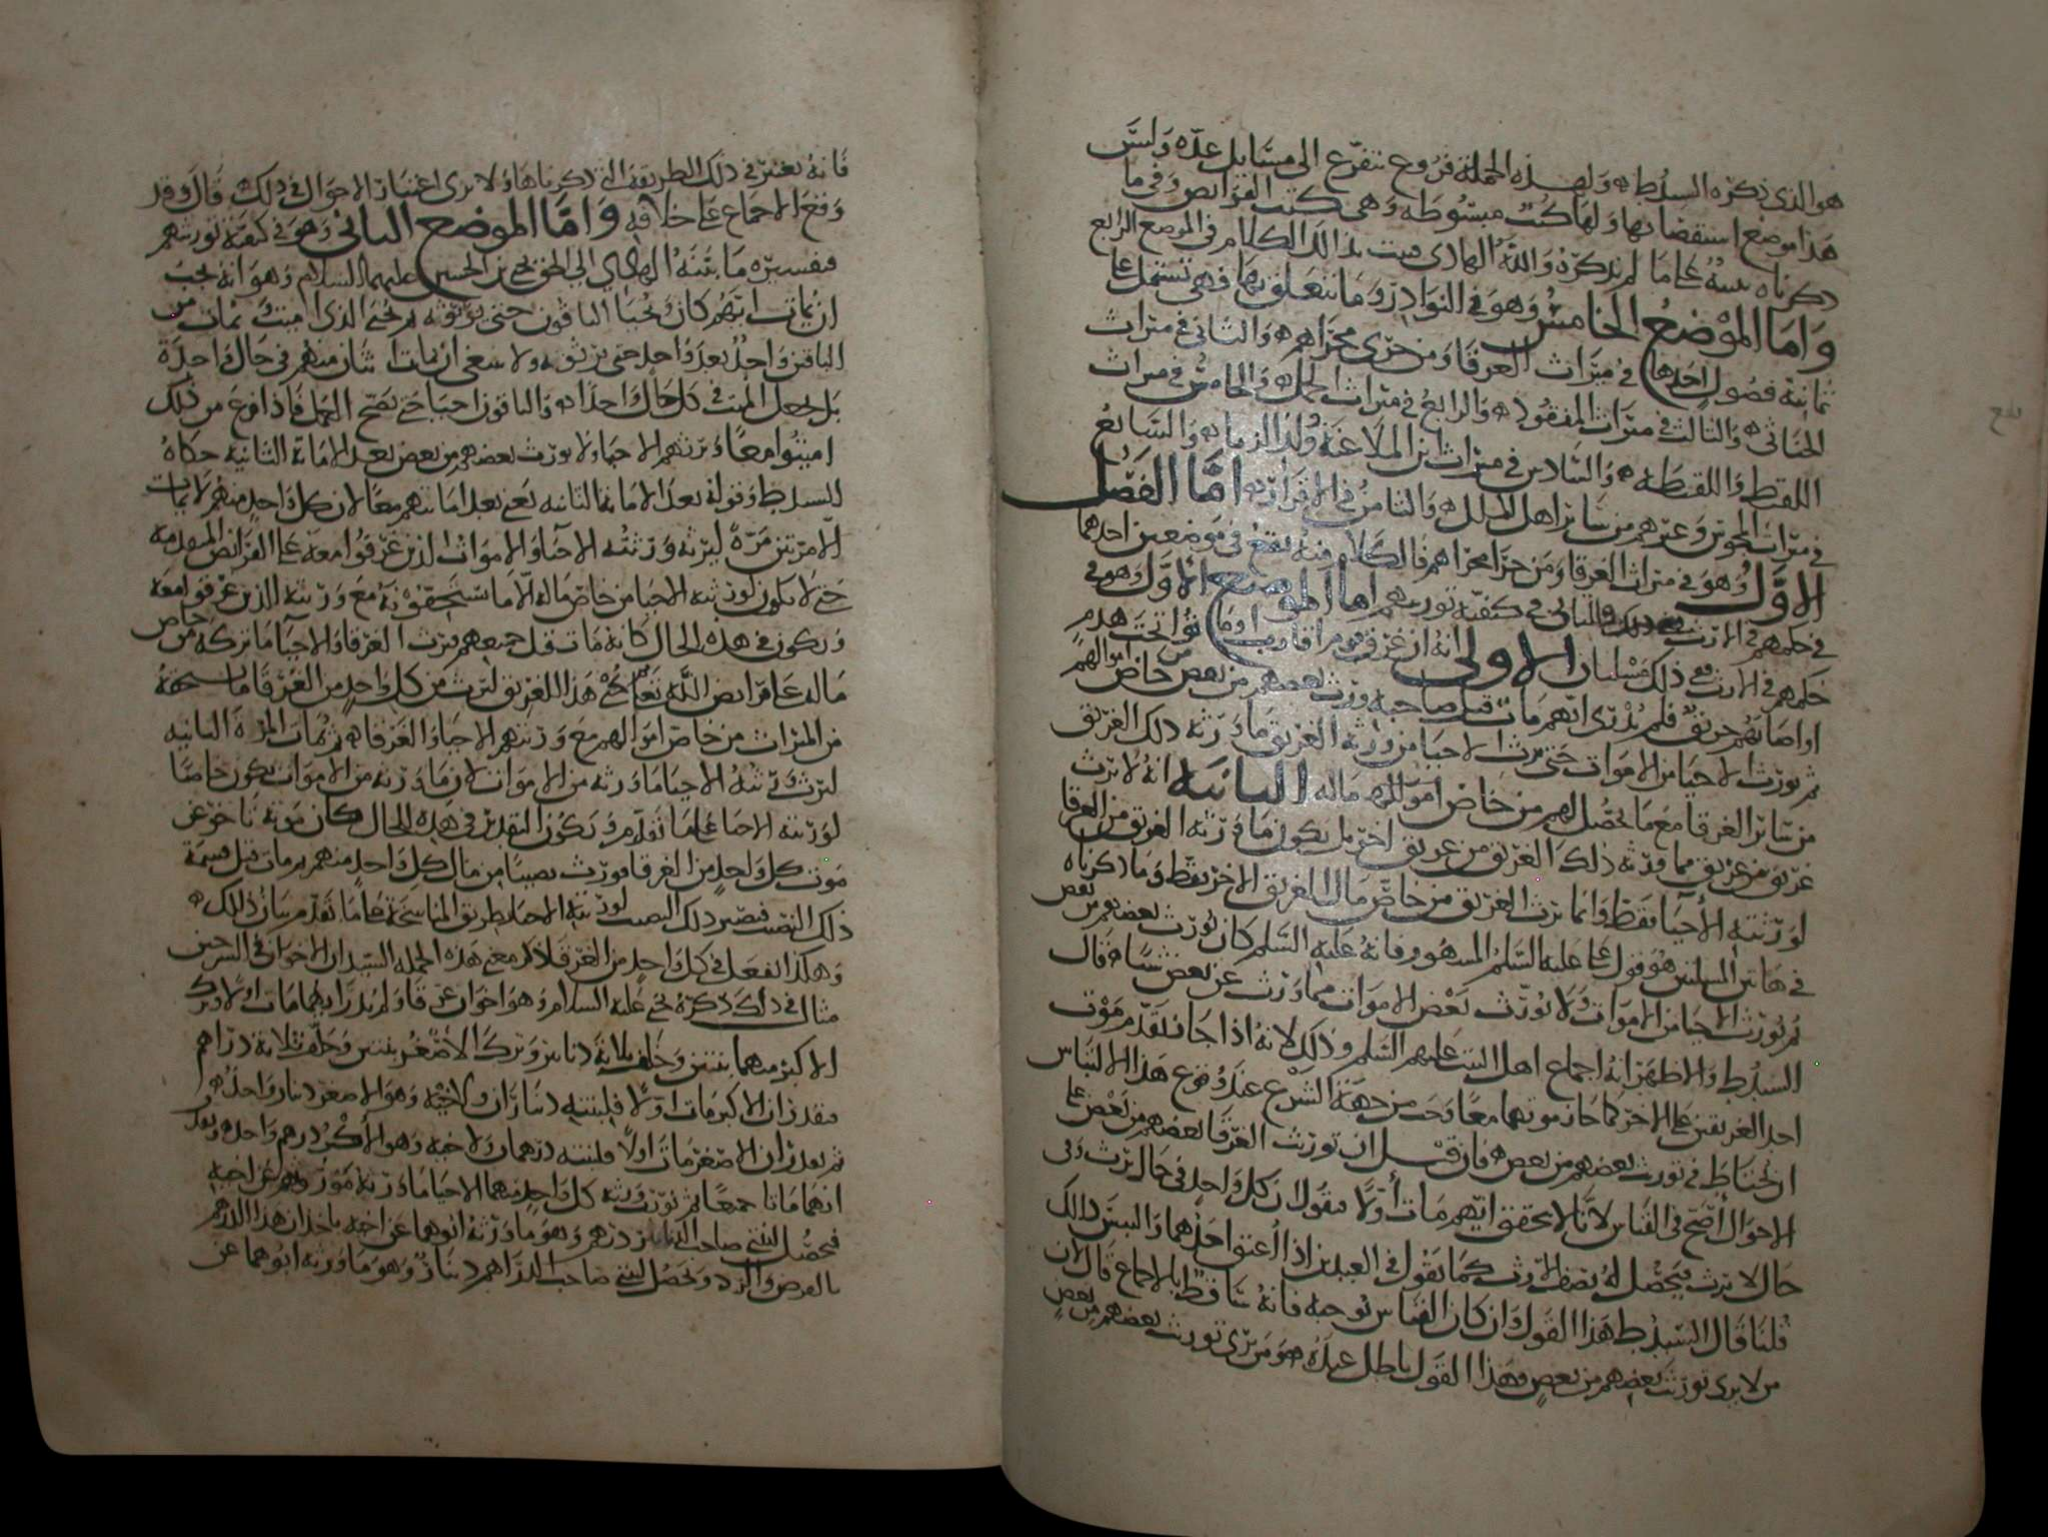 هو الذي ذكره السيد ط ولهذه الجملة فروع تتفرع الى مسايل عده وليس
هذا موضع استقصائها ولها كتب مبسوطه وهي كتب الفرايض وفي ما
ذكرناه تنبيه على ما لم نذكره والله الهادي فيث بذلك الكلام في الموضع الرابع
واما الموضع الخامس وهو في النوادر وما يتعلق بها فهي تشتمل على
ثمانية فصول احدها في ميراث الغرقا ومن جرى مجراهم والثاني في ميراث
الخناثى والثالث في ميراث المفقود والرابع في ميراث الحمل والخامس في ميراث
اللقيط واللقيطه والسادس في ميراث ابن الملاعنة وولد الزنا والسابع
في ميراث المجوس وغيرهم من ساير اهل الملل والثامن في الاقرار اما الفصل
الاول وهو في ميراث الغرقا ومن جرا مجراهم فالكلام فيه يقع في موضعين احدهما
في حكمهم في الارث والثاني في كيفية توريثهم اما الموضع الاول وهو في
حكمهم في الارث ففي ذلك مسئلتان الاولى انه ان غرق قوم اقارب او ماتوا تحت هدم
او اصابهم حريق فلم يدرى ايهم مات قبل صاحبه ورث بعضهم من بعض من خاص اموالهم
ثم يورث الاحيا من الاموات حتى يرث الاحيا من ورثة الغريق ما ورثه ذلك الغريق
من ساير الغرقا مع ما يحصل لهم من خاص اموالهم ماله الثانية انه لا يرث
غريق من غريق مما ورثه ذلك الغريق من غريق اخر بل يكون ما ورثه الغريق من الغرقا
لورثته الاحيا فقط وانما يرث الغريق من خاص مال الغريق الاخر فقط وما ذكرناه
في هاتين المسلتين هو قول علي عليه السلم المشهور فانه عليه السلم كان يورث بعضهم من بعض
ثم يورث الاحيا من الاموات ولا يورث بعض الاموات مما ورث عن بعض شيا قال
السيد ط والاظهر انه اجماع اهل البيت عليهم السلم وذلك لانه اذا جاز تقدم موت
احد الغريقين على الاخر كما جاز موتهما معا وجب من جهة الشرع عند وقوع هذا الالتباس
ان يحتاط في توريث بعضهم من بعض فان قيل ان توريث الغرقا بعضهم من بعض على
الاحوال اصح في القياس لانا لا نحقق ايهم مات اولا فنقول ان كل واحد في حال يرث وفي
حال لا يرث فيحصل له نصف الارث كما نقول في العبدين اذا اعتق احدهما والتبس ذلك
قلنا قال السيد ط هذا القول وان كان القياس يوجبه فانه ساقط بالاجماع قال لان
من لا يرى توريث بعضهم من بعض فهذا القول باطل عنده ومن يرى توريث بعضهم من بعض
فانه يعتبر في ذلك الطريقة التي ذكرناها ولا يرى اعتبار الاحوال في ذلك قال وقد
وقع الاجماع على خلافه واما الموضع الثاني وهو في كيفية توريثهم
فتفسيره ما بينه الهادي الى الحق يحيى بن الحسين عليهما السلام وهو انه يجب
ان يمات ايهم كان ويحيا الباقون حتى يرثونه ثم يحيى الذي اميت ويمات من
الباقين واحد بعد واحد حتى يرثونه ولا ينبغي ان يمات اثنان منهم في حال واحدة
بل يجعل الميت في كل حال واحدا والباقون احيا حتى يصح العمل فاذا فرغ من ذلك
اميتوا معا ويرثهم الاحيا ولا يورث بعضهم من بعض بعد الاماتة الثانية حكاه
السيد ط وقوله بعد الاماتة الثانيه يعني بعد اماتتهم معا لان كل واحد منهم لا يمات
الا مرتين مرة ليرثه ورثته الاحيا والاموات الذين غرقوا معه على الفرائض المتقدمه
حتى لا يكون لورثته الاحيا من خاص ماله الا ما يستحقونه مع ورثته الذين غرقوا معه
ويكون في هذه الحال كانه مات قبل جميعهم فيرث الغرقا والاحيا ما تركه من خاص
ماله على فرايض الله تعالى ثم يحيى هذا الغريق ليرث من كل واحد من الغرقا ما يستحقه
من الميراث من خاص اموالهم مع ورثتهم الاحيا والغرقا ثم يمات المرة الثانيه
ليرث ورثته الاحيا ما ورثه من الاموات لان ما ورثه من الاموات يكون خاصا
لورثته الاحيا على ما تقدم ويكون التقدير في هذه الحال كان موته تاخر عن
موت كل واحد من الغرقا فورث نصيبا من مال كل واحد منهم ثم مات قبل قسمة
ذلك النصيب فيصير ذلك النصيب لورثته الاحيا بطريق المناسخة على ما تقدم بيان ذلك
وهكذا يفعل في كل واحد من الغرقا ذكر معنى هذه الجمله السيدان الاخوان في الشرحين
مثال في ذلك ذكره يحيى عليه السلام وهو اخوان غرقا ولم يدر ايهما مات اولا وترك
الاكبر منهما بنتين وخلف ثلاثة دنانير وترك الاصغر بنتين وخلف ثلاثة دراهم
فتقدر ان الاكبر مات اولا فلبنتيه ديناران ولاخيه وهو الاصغر دينار واحد
ثم يقدر ان الاصغر مات اولا فلبنتيه درهمان ولاخيه وهو الاكبر درهم واحد ويقدر
انهما ماتا جميعا ثم نورث ورثة كل واحد منهما الاحيا ما ورثه مورثهم عن اخيه
فيحصل لبنتي صاحب الدنانير درهم وهو ما ورثه ابوهما عن اخيه ياخذان هذا الدرهم
بالفرض والرد ويحصل لبنتي صاحب الدراهم دينار وهو ما ورثه ابوهما عن